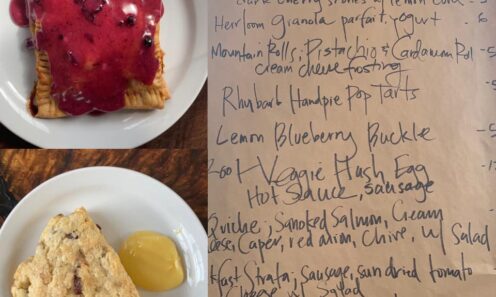 Dark Cherry Scones w/ Lemon Curd - 5
Heirloom granola parfait, yogurt - 6
Mountain Rolls, Pistachio & Cardamom Roll - 5
cream cheese frosting
Rhubarb Handpie Pop Tarts
Lemon Blueberry Buckle
Veggie Hash Egg
Hot Sauce, sausage
Quiche, Smoked Salmon, Cream
Caper, red onion, Chive, w/ Salad
Strata, Sausage, sun dried tomato
cheese w/ Salad